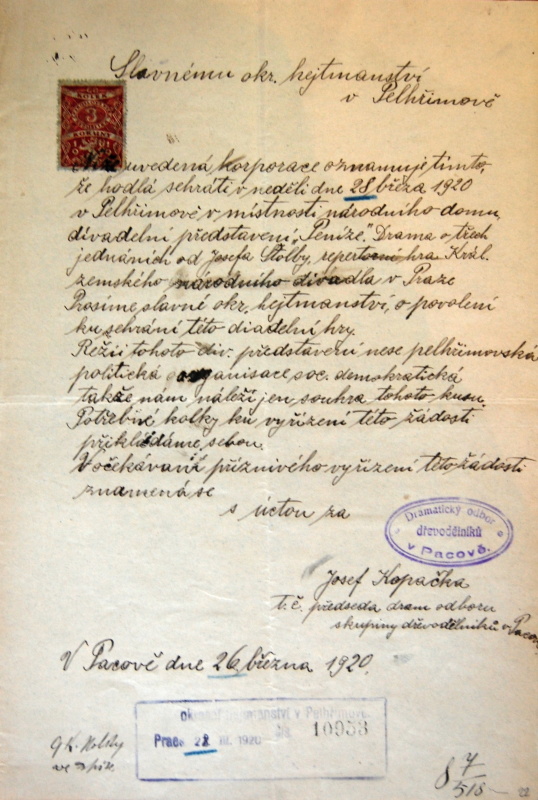 Slavnému okr. hejtmanství
v Pelhřimově
KOLEK
3
KORUNY
Níže uvedená korporace oznamuje tímto,
že hodlá sehráti v neděli dne 28 března 1920
v Pelhřimově v místnosti národního domu
divadelní představení „Peníze". Drama o třech
jednáních od Josefa Štolby, repertorní hra Král.
zemského národního divadla v Praze
Prosíme, slavné okr. hejtmanství, o povolení
ku sehrání této diadelní hry.
Režii tohoto div. představení nese pelhřimovská
politická organisace soc. demokratická
takže nám náleží jen souhra tohoto kusu.
Potřebné kolky ku vyřízení této žádosti
přikládáme, sebou.
V očekávaní příznivého vyřízení této žádosti
znamená se
s úctou za
Dramatický odbor
dřevodělníků
v Pacově.
Josef Kopačka
t. č. předseda dram odboru
skupiny dřevodělníků v Pacově
V Pacově dne 26 března 1920.
okresní hejtmanství v Pelhřimově
Praes 28 III. 1920 čís. 10953
9 K. kolky
ve spise
8 7/518
22